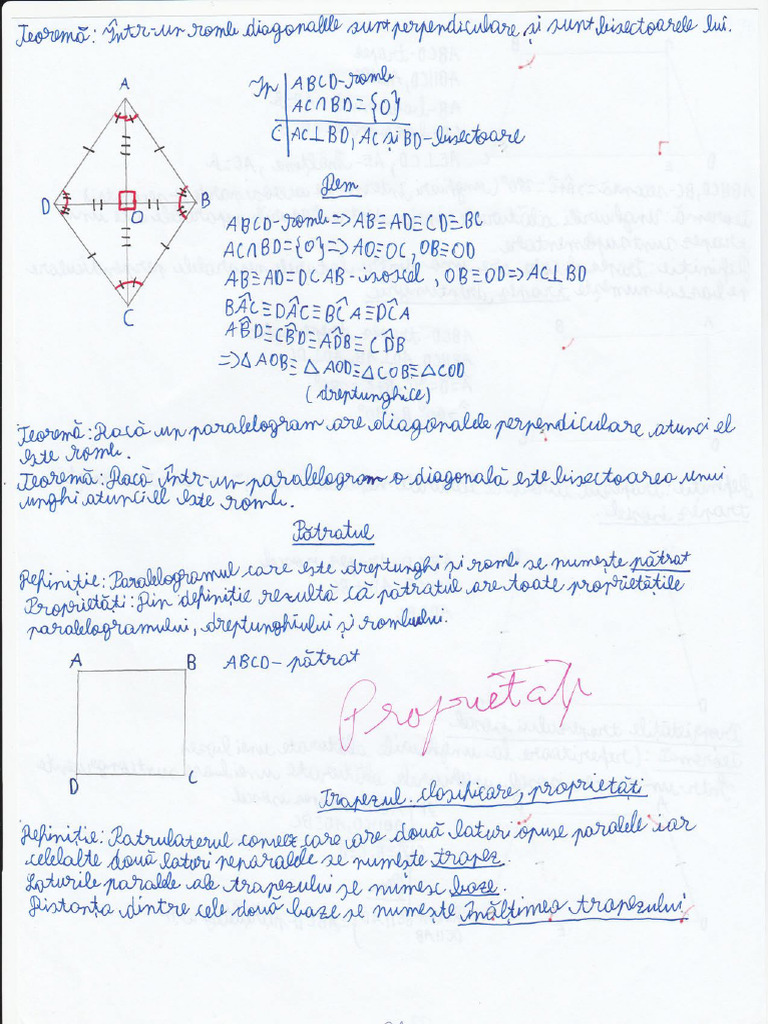 Teoremă: Într-un romb diagonalele sunt perpendiculare și sunt bisectoarele lui.
A
D
B
O
C
Ip | ABCD-romb
AC∩BD={O}
C | AC⊥BD, AC și BD-bisectoare
Dem
ABCD-romb=>AB≡AD≡CD≡BC
AC∩BD={O}=>AO≡OC, OB≡OD
AB≡AD=DCAB-isoscel, OB≡OD=>AC⊥BD
BÂC≡DÂC≡BĈA≡DĈA
AB̂D≡CB̂D≡AD̂B≡CD̂B
=>△AOB≡△AOD≡△COB≡△COD
(dreptunghice)
Teoremă: Dacă un paralelogram are diagonalele perpendiculare, atunci el
este romb.
Teoremă: Dacă într-un paralelogram o diagonală este bisectoarea unui
unghi atunci el este romb.
Pătratul
Definiție: Paralelogramul care este dreptunghi și romb se numește pătrat
Proprietăți: Din definiție rezultă că pătratul are toate proprietățile
paralelogramului, dreptunghiului și rombului.
A
B
D
C
ABCD-pătrat
Proprietăți
Trapezul. clasificare, proprietăți
Definiție: Patrulaterul convex care are două laturi opuse paralele iar
celelalte două laturi neparalele se numește trapez.
Laturile paralele ale trapezului se numesc baze.
Distanța dintre cele două baze se numește înălțimea trapezului